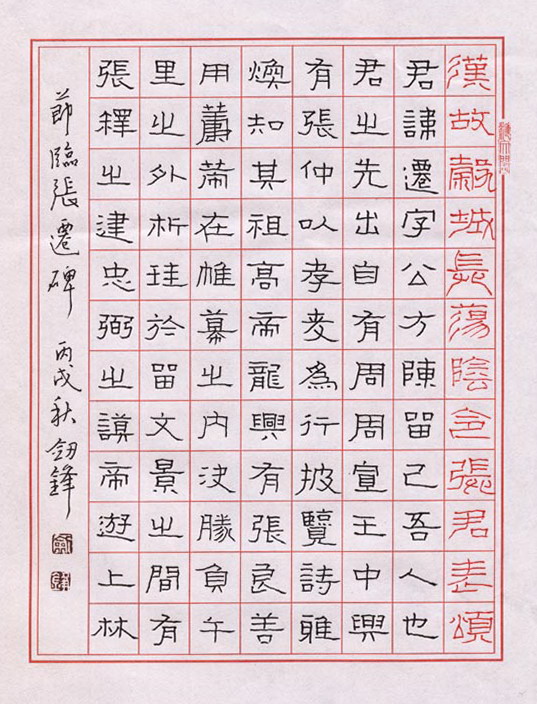 漢故穀城長蕩陰令張君表頌
君諱遷字公方陳留己吾人也
君之先出自有周周宣王中興
有張仲以孝友為行披覽詩雅
煥知其祖高帝龍興有張良善
用蕭䓑在帷幕之内決勝負千
里之外析珪於留文景之間有
張釋之建忠弼之謨帝遊上林
節臨張遷碑 丙戌秋 劒鋒